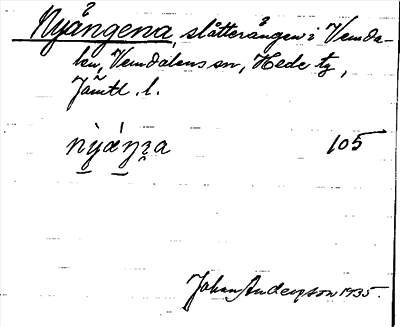 Nyångena, slåtterängen i Vemda-
len, Vemdalens sn, Hede tg,
Jämtl. l.
105
Johan Anderpson 1935.